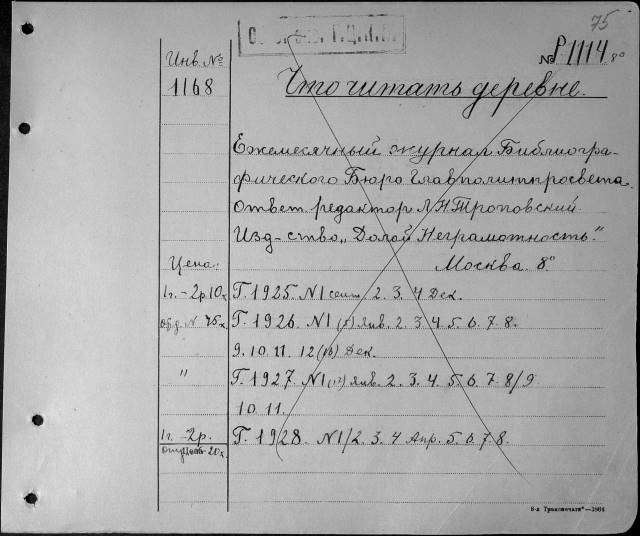 75
Инв. №
№ Р1114 8°
1168
Что читать деревне.
Ежемесячный журнал Библиогра-
фического Бюро Главполитпросвета.
Ответ. редактор Л.Н. Троповский
Изд-ство „Долой Неграмотность."
Цена.
Москва. 8°
1г. - 2р. 10к. Г. 1925. N1 сент. 2. 3. 4 Дек.
N 75к. Г. 1926. N1 (5) янв. 2. 3. 4. 5. 6. 7. 8.
9. 10. 11. 12 (16) Дек.
" Г. 1927. N1 (17) янв. 2. 3. 4. 5. 6. 7. 8/9
10. 11.
1г. - 2р. Г. 1928. N1/2. 3. 4 Апр. 5. 6. 7. 8.
20к.
8-я Транспечати" —1864